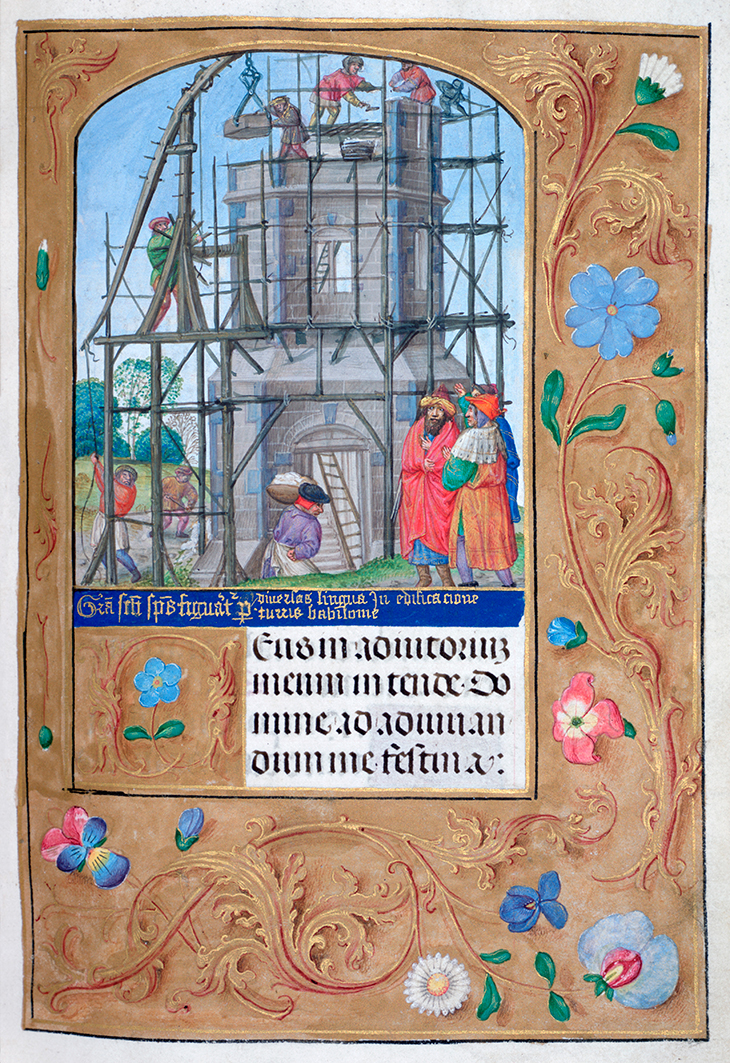 Grā sc̄ti sp̄s figurat᷑ ꝑ diuersas lingua In edificacione
turris babilonie
Deus in adiutoriuʒ
meum in tende· Do
mine ad adiuuan
dum me festina